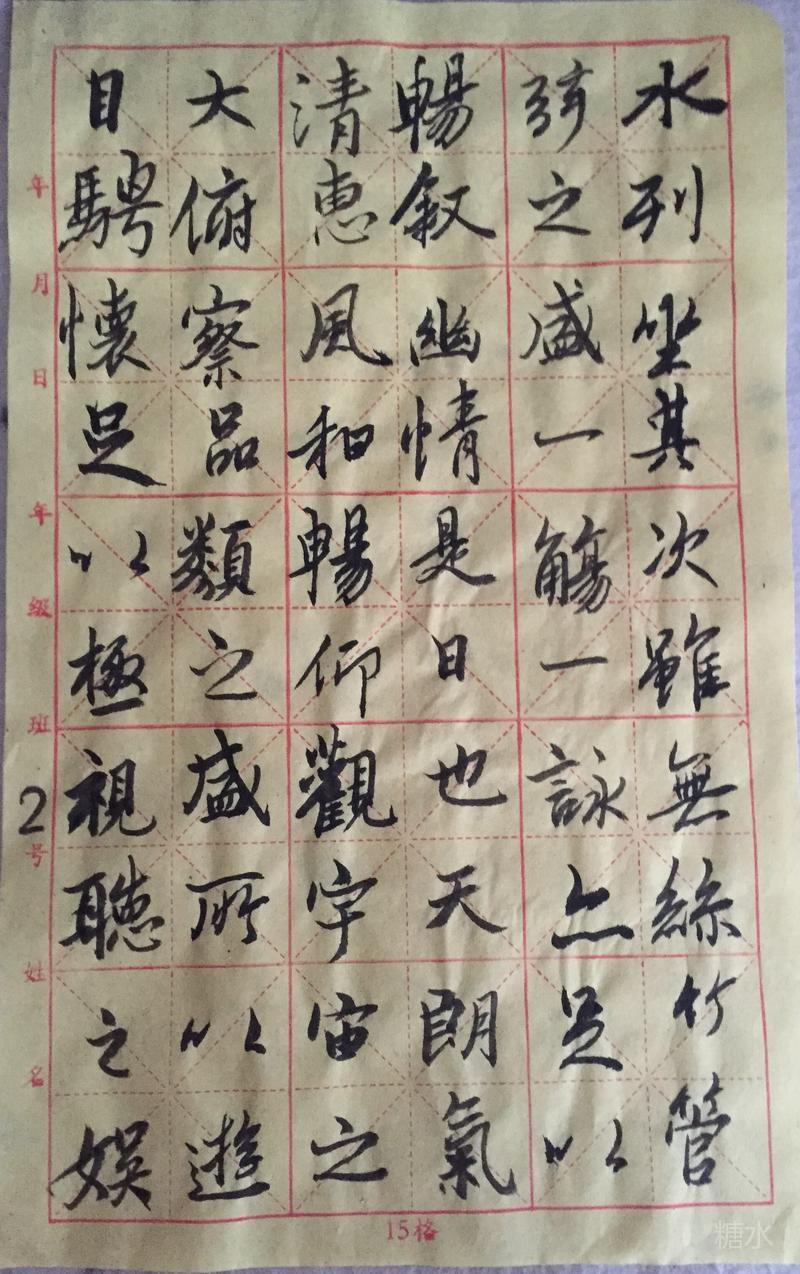 水列坐其次雖無絲竹管
弦之盛一觴一詠亦足以
暢叙幽情是日也天朗氣
清惠風和暢仰觀宇宙之
大俯察品類之盛所以遊
目騁懷足以極視聽之娛
年月日年级班2号姓名
15格
糖水